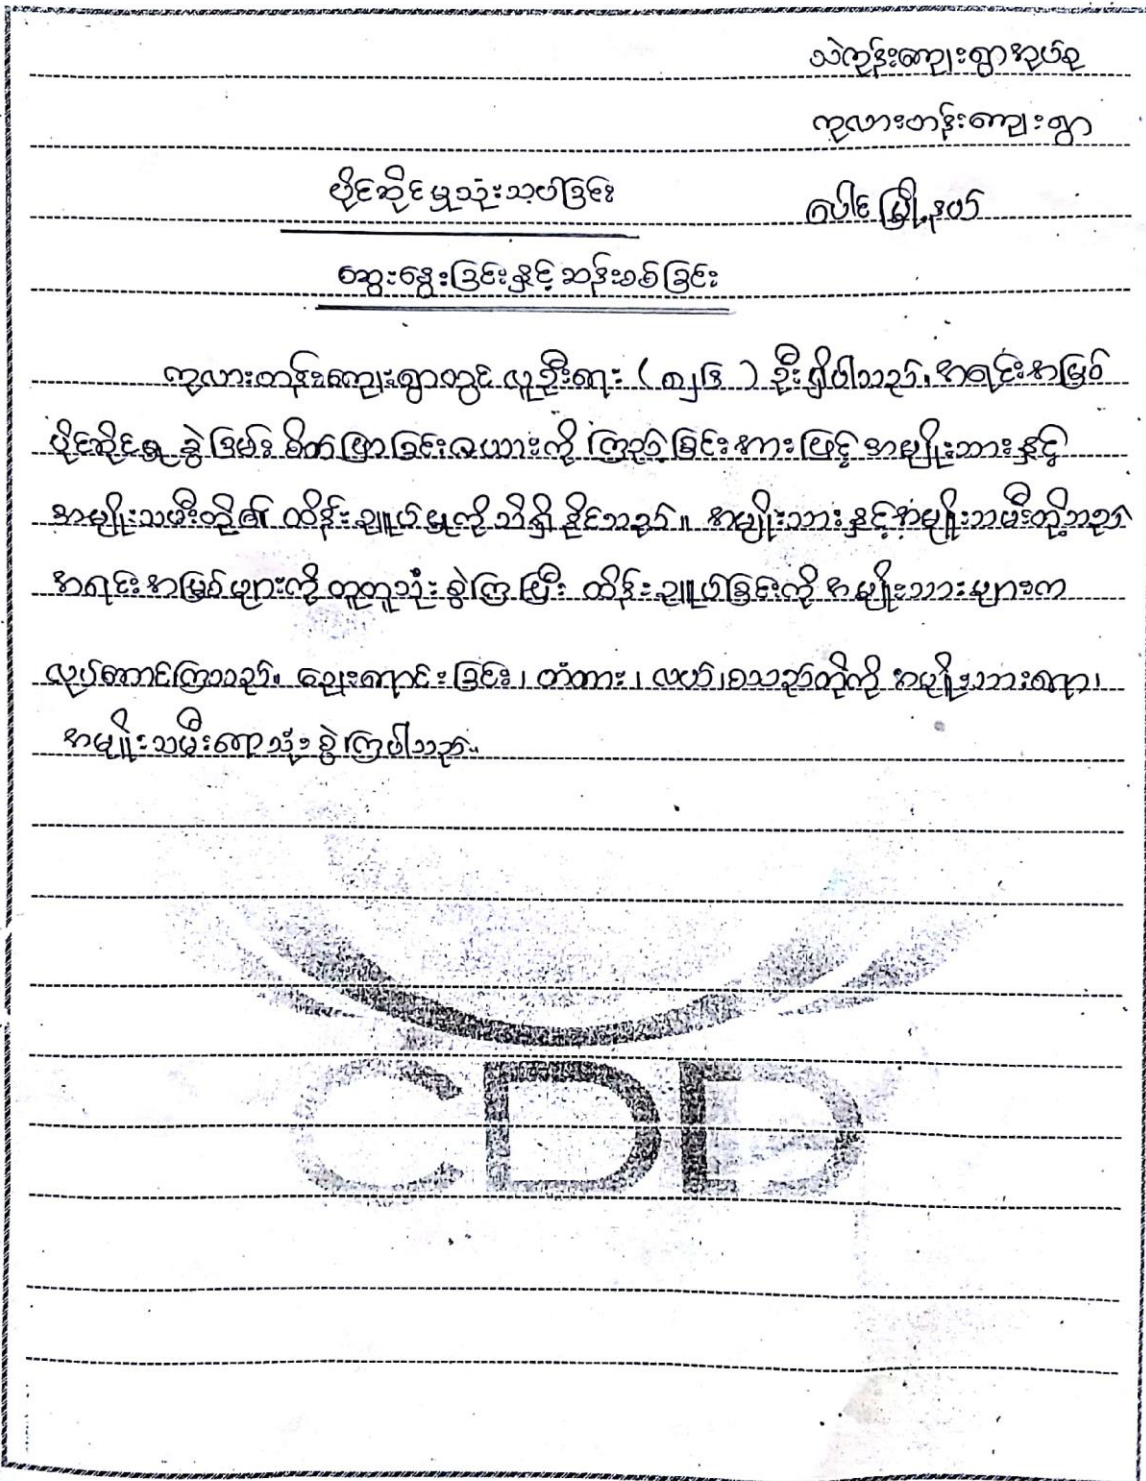 သဲကုန်းကျေးရွာအုပ်စု
ကုလားတန်းကျေးရွာ
ပိုင်ဆိုင်မှုသုံးသပ်ခြင်း
ပေါင်မြို့နယ်
ဆွေးနွေးခြင်းနှင့် ဆန်းစစ်ခြင်း
ကုလားတန်းကျေးရွာတွင် လူဦးရေး ( ၈၂၆ ) ဦးရှိပါသည်၊ အရင်းအမြစ်
ပိုင်ဆိုင်မှု ခွဲခြမ်းစိတ်ဖြာခြင်းဇယားကို ကြည့်ခြင်းအားဖြင့် အမျိုးသားနှင့်
အမျိုးသမီးတို့၏ ထိန်းချူပ်မှုကိုသိရှိနိုင်သည်။ အမျိုးသားနှင့်အမျိုးသမီးတို့သည်
အရင်းအမြစ်များကိုတူတူသုံးစွဲကြပြီး ထိန်းချူပ်ခြင်းကိုအမျိုးသားများက
လုပ်ဆောင်ကြသည်။ ချေးကောင်းခြင်း၊ တံတား၊ လယ်၊ စသည်တို့ကို အမျိုးသားရော၊
အမျိုးသမီးရောသုံးစွဲကြပါသည်။
CDD